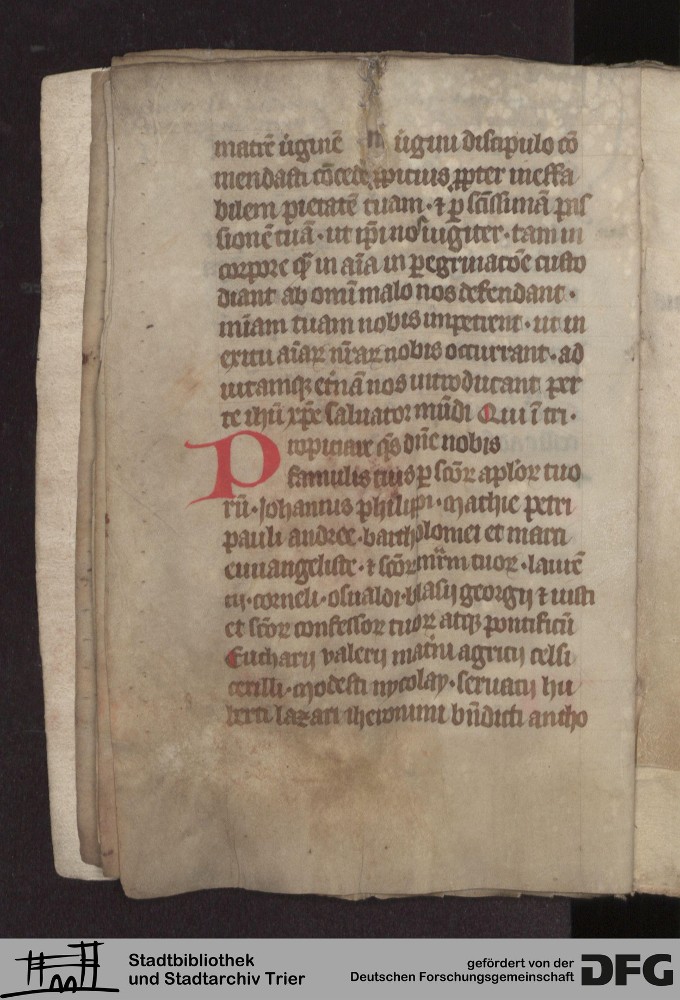 matrē v̇ginē v̇gini discipulo cō
mendasti cōcede ꝓpicius ꝓpter ineffa
bilem pietatē tuam · ⁊ ꝑ sc̄issimā pas
sionē tuā · ut ip̄i nos iugiter · tam in
corpore q̄ in aīa in ꝑegrinacōe custo
diant ab omī malo nos defendant ·
mīam tuam nobis impetrent · ut in
exitu aīaꝝ nr̄aꝝ nobis occurrant · ad
vitamqꝫ et̄nā nos introducant per
te ihū xp̄e saluator mūdi Qui ī tri ·
Propiciare q̄s dn̄e nobis
famulis tuis ꝑ sc̄oꝝ apl̄oꝝ tuo
rū · Johannis philippi · Mathie petri
pauli andree · bartholomei et marci
euuangeliste · ⁊ sc̄oꝝ mr̄m tuoꝝ · laurē
cij · corneli · osualdi · blasij georgij ⁊ iusti
et sc̄oꝝ confessoꝝ tuoꝝ atqꝫ pontificū
Eucharij valerij mat̄ni agricij celsi
cirilli · Modesti nycolay · seruacij hu
berti lazari iheronimi bn̄dicti antho
Stadtbibliothek
und Stadtarchiv Trier
gefördert von der
Deutschen Forschungsgemeinschaft
DFG